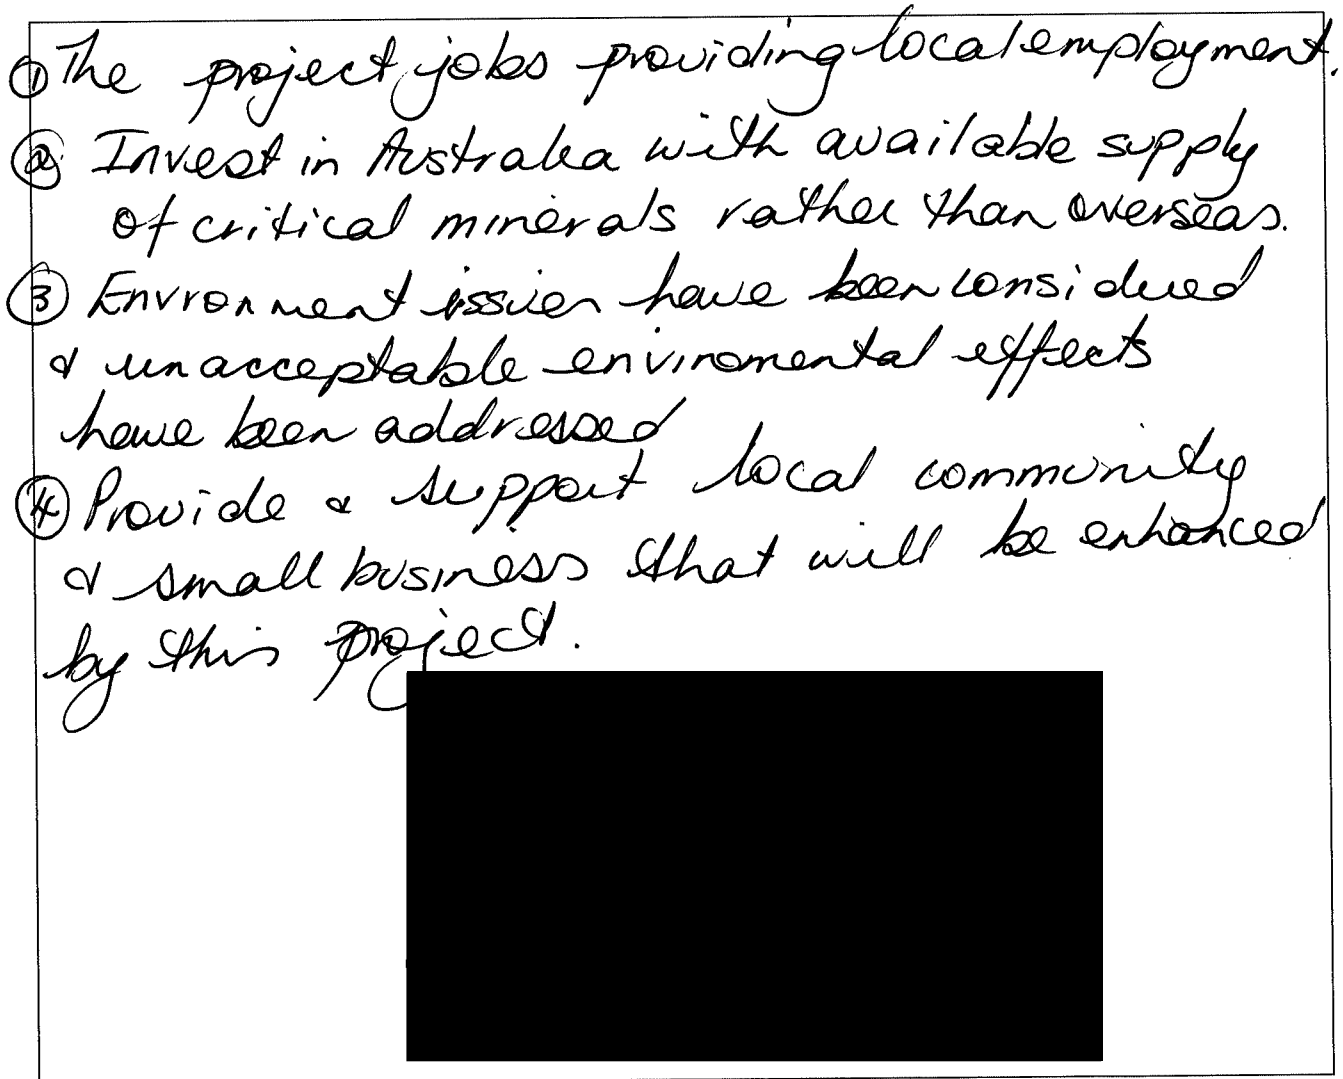 ① The project jobs providing local employment.
② Invest in Australia with available supply
of critical minerals rather than overseas.
③ Envronment issues have been considered
& unacceptable enviromental effects
have been addressed
④ Provide & support local community
& small business that will be enhanced
by this project.